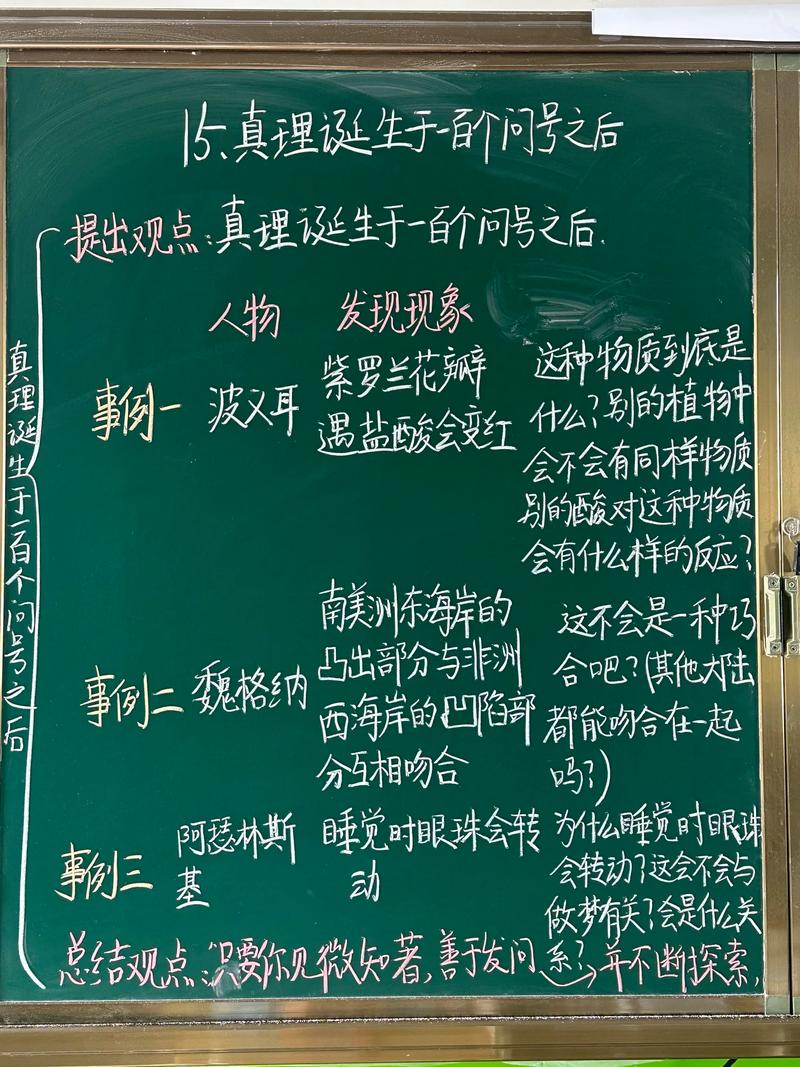 15、真理诞生于一百个问号之后
真理诞生于一百个问号之后
提出观点：真理诞生于一百个问号之后.
人物 发现现象
事例一 波义耳
紫罗兰花瓣
遇盐酸会变红
这种物质到底是
什么？别的植物中
会不会有同样物质
别的酸对这种物质
会有什么样的反应？
事例二 魏格纳
南美洲东海岸的
凸出部分与非洲
西海岸的凹陷部
分互相吻合
这不会是一种巧
合吧？（其他大陆
都能吻合在一起
吗？）
事例三
阿瑟林斯
基
睡觉时眼珠会转
动
为什么睡觉时眼珠
会转动？这会不会与
做梦有关？会是什么关
系？
总结观点：“只要你见微知著，善于发问→并不断探索，